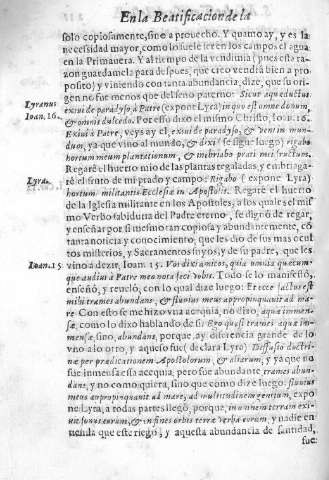 En la Beatificacion de la
solo copiosamente, sino a prouecho. Y quanto ay, y es la
necessidad mayor, como lo suele ser en los campos el agua
en la Primauera. Y al tiempo de la vendimia (pues esta razon
guardamela para despues, que creo vendrà bien a proposito)
y viniendo con tanta abundancia, dize, que su origen
no fue menos que del seno paterno: Sicut aquæductus
exiui de paradyso, à Patre (expone Lyra) in quo est omne donum,
Lyranus
& omnis dulcedo. Por esso dixo el mismo Christo, Ioan. 16.
Ioan. 16.
Exiui à Patre, veys ay el, exiui de paradyso, & veni in mundum,
ya que vino al mundo, & dixi (se sigue luego) rigabo
hortum meum plantationum, & inebriabo prati mei fructum.
Regarè el huerto mio de las plantas regaladas, y embriagarè
el fruto de mi prado y campo: Rigabo (expone Lyra)
Lyra.
hortum militantis Ecclesiæ in Apostolis. Regarè el huerto
de la Iglesia militante en los Apostoles, a los quales el mismo
Verbo sabiduria del Padre eterno, se dignò de regar,
y enseñar por si mesmo tan copiosa y abundantemente, cõ
tanta noticia y conocimiento, que les dio de sus mas ocultos
misterios, y Sacramentos suyos, y de su padre, que les
vino a dezir, Ioan. 15. Vos dixi amicos, quia omnia quæcunque
Ioan. 15
audiui à Patre meo nota feci vobis. Todo se lo manifestò,
enseñò, y reuelò, con lo qual dize luego: Et ecce factus est
mihi trames abundans, & fluuius meus appropinquauit ad mare.
Con esto se me hizo vna acequia, no dixo, aqua immensæ,
como lo dixo hablando de si: Ego quasi trames aquæ immensæ,
sino, abundans, porque, ay diferencia grande de lo
vno a lo otro, y aquesso fue (declara Lyra)
per prædicationem Apostolorum, & aliorum, y ya que no
fue inmensa esta acequia, pero fue abundante, trames abundans,
y no como quiera, sino que como dize luego: fluuius
meus appropinquauit ad mare, ad multitudinem gentium, expone
Lyra, a todas partes llegò, porque, in omnem terram exiuit
sonus eorum, & in fines orbis terræ verba eorum, y nadie en
tienda que este riego, y aquesta abundancia de santidad,
fue